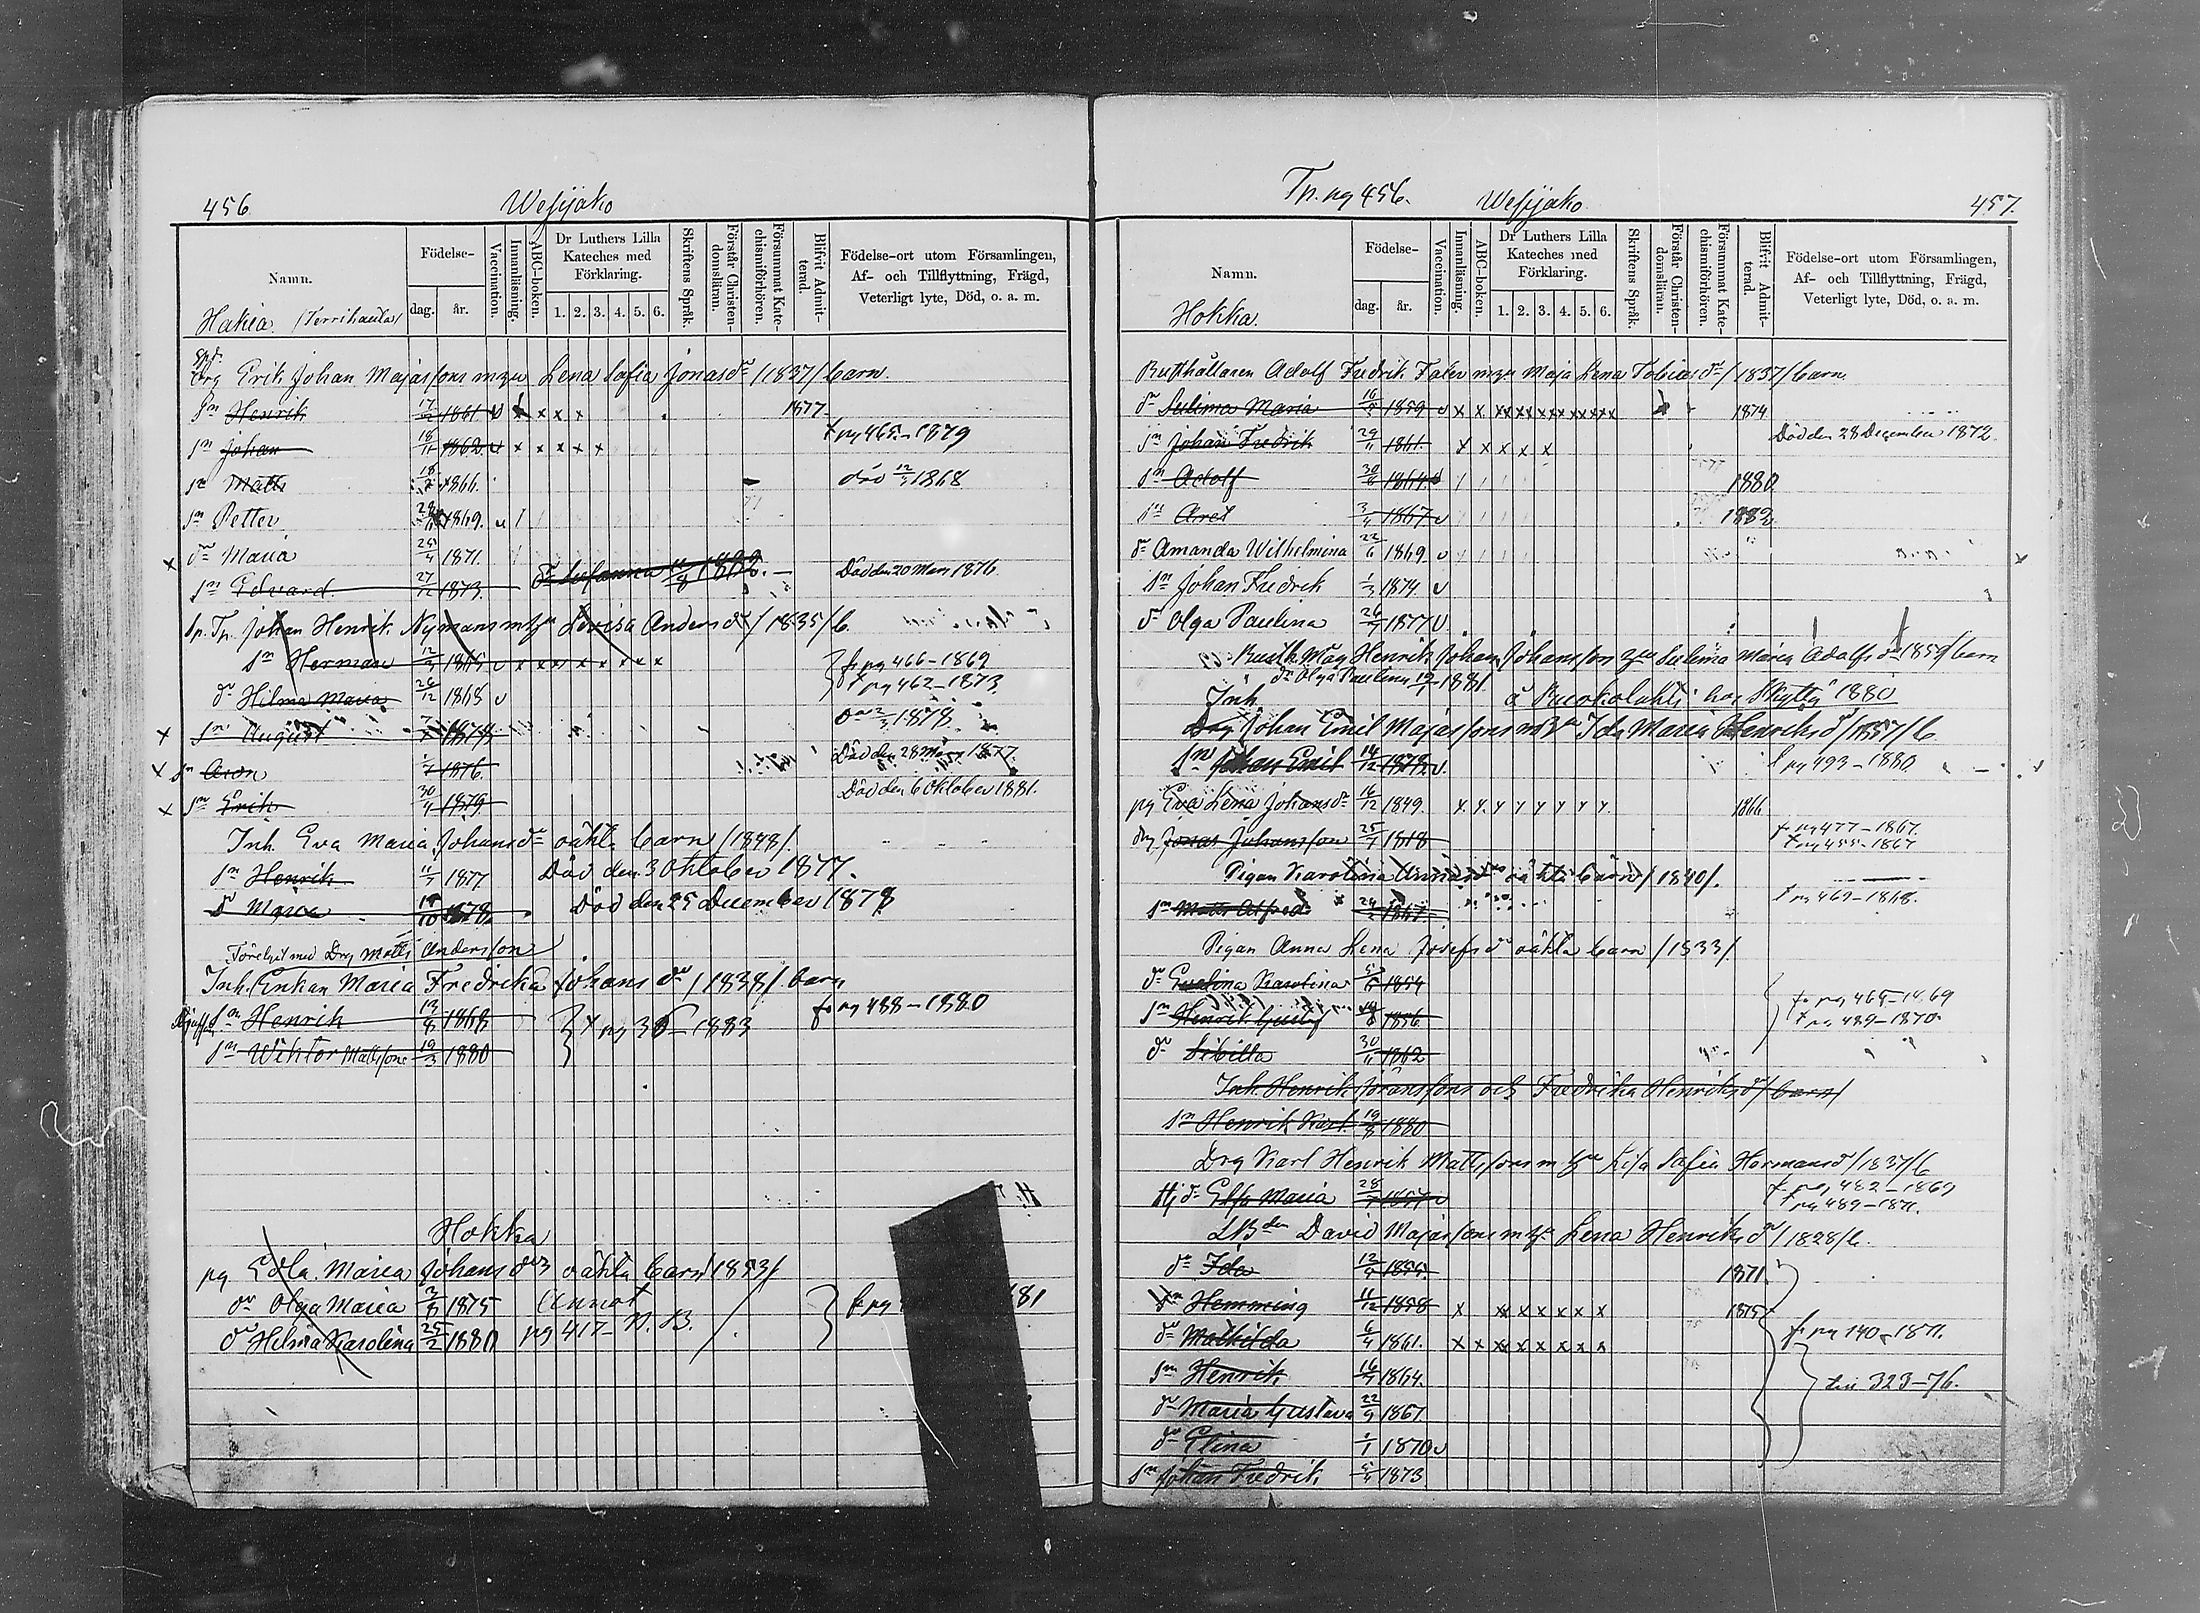 456. Wesijako
Namn.
Födelse-
dag. år.
Vaccination.
Innanläsning.
ABC-boken.
Dr Luthers Lilla Kateches med Förklaring.
1. 2. 3. 4. 5. 6.
Skriftens Språk.
Förstår Christendomsläran.
Försummat Katechismiförhören.
Blifvit Admitterad.
Födelse-ort utom Församlingen,
Af- och Tillflyttning, Frägd,
Veterligt lyte, Död, o. a. m.
Hakia
Drg Erik Johan Majassons m hu Lena Sofia Jonas dr /1837/ barn.
sn Henrik 17/2 1861 v x x x x 1877
sn Johan 18/11 1862 v x x x x x pg 465 - 1879
sn Matts 1866. död 12/3 1868
sn Petter 1869. v
dr Maria 25/4 1871.
sn Edvard 27/12 1873. dr Susanna 1882. Död den 20 Mars 1876
Sp. Tp. Johan Henrik Nymans m hu Lovisa Anders dr /1835/ b.
sn Herman 1865 v x x x x x x x x fr pg 466 - 1869
dr Hilma Maria 26/12 1868 v t pg 462 - 1873
sn August 1878
x sn Aron 1/7 1876. Död den 28 Mars 1877.
x sn Erik 30/4 1879. Död den 6 Oktober 1881.
Inh. Eva Maria Johans dr oäkta barn /1848/.
sn Henrik 11/7 1877 Död den 3 Oktober 1877.
dr Maria 1878. Död den 25 December 1878
Drg Matts Andersson
Inh. Enkan Maria Fredrika Johans dr /1838/ barn
sn Henrik 1868 t pg 36 - 1883 fr pg 488 - 1880
sn Wiktor Mattsson 19/3 1880
Hokka
pg Edla Maria Johans drs oäkta barn /1853/
dr Olga Maria 1875 Annot fr pg 81
dr Helma Karolina 25/2 1880 pg 417 N.B.
Tn. pg 456. Wesijako. 457.
Namn.
Födelse-
dag. år.
Vaccination.
Innanläsning.
ABC-boken.
Dr Luthers Lilla Kateches med Förklaring.
1. 2. 3. 4. 5. 6.
Skriftens Språk.
Förstår Christendomsläran.
Försummat Katechismiförhören.
Blifvit Admitterad.
Födelse-ort utom Församlingen,
Af- och Tillflyttning, Frägd,
Veterligt lyte, Död, o. a. m.
Hokka.
Rusthållaren Adolf Fredrik m hu Maja Lena Tobias dr /1837/ barn
dr Sulima Maria 1859 v x x xx xx xx xx xx xx 1874
sn Johan Fredrik 29/11 1861. x x x x x Död den 28 December 1872.
sn Adolf 30/6 1864 v 1880
sn Axel 3/4 1867 v 1882
dr Amanda Wilhelmina 22/6 1869 v
sn Johan Fredrik 1/3 1874 v
dr Olga Paulina 26/7 1877 v
Rusth. Måg Henrik Johan Johansson hu Sulima Maria Adolfs dr 1859/ barn
dr Olga Paulina 1881.
Inh. 1880
Drg Johan Emil Majassons m hu Ida Maria Henriks dr /1857/ b
sn Johan Emil 14/12 1878 v. t pg 493 - 1880.
pg Eva Lena Johans dr 16/12 1849. x x x x x x x x 1866.
drg Jonas Johansson 25/7 1818 fr pg 477 - 1867.
t pg 455 - 1867
Pigan Karolina oäkta barn /1840/.
sn Matts Alfred 1867. t pg 469 - 1868.
Pigan Anna Lena Josefs dr oäkta barn /1833/
dr Karolina 1854
sn Henrik Gustaf 1856. t pg 489 - 1870.
dr Sibilla 30/11 1862
Inh. Henrik Göranssons och Fredrika Henriks dr /barn/
sn Henrik Karl. 19/8 1880
Drg Karl Henrik Mattssons m hu Lisa Sofia Hermans dr /1837/ b
dr Maria 1857 v fr pg 482 - 1869
t pg 489 - 1871.
David Majassons m hu Lena Henriks dr /1828/ b.
dr Ida 1855. 1871.
sn Hemming 11/12 1858 x xx x x x x x 1875
dr Mathilda 6/4 1861. x x xx x x x x x fr pg 140 - 1871.
sn Henrik 1864. till 323 - 76.
dr Maria Gustava 22/9 1867
dr Elina 1/1 1870 v
sn Johan Fredrik 1873.